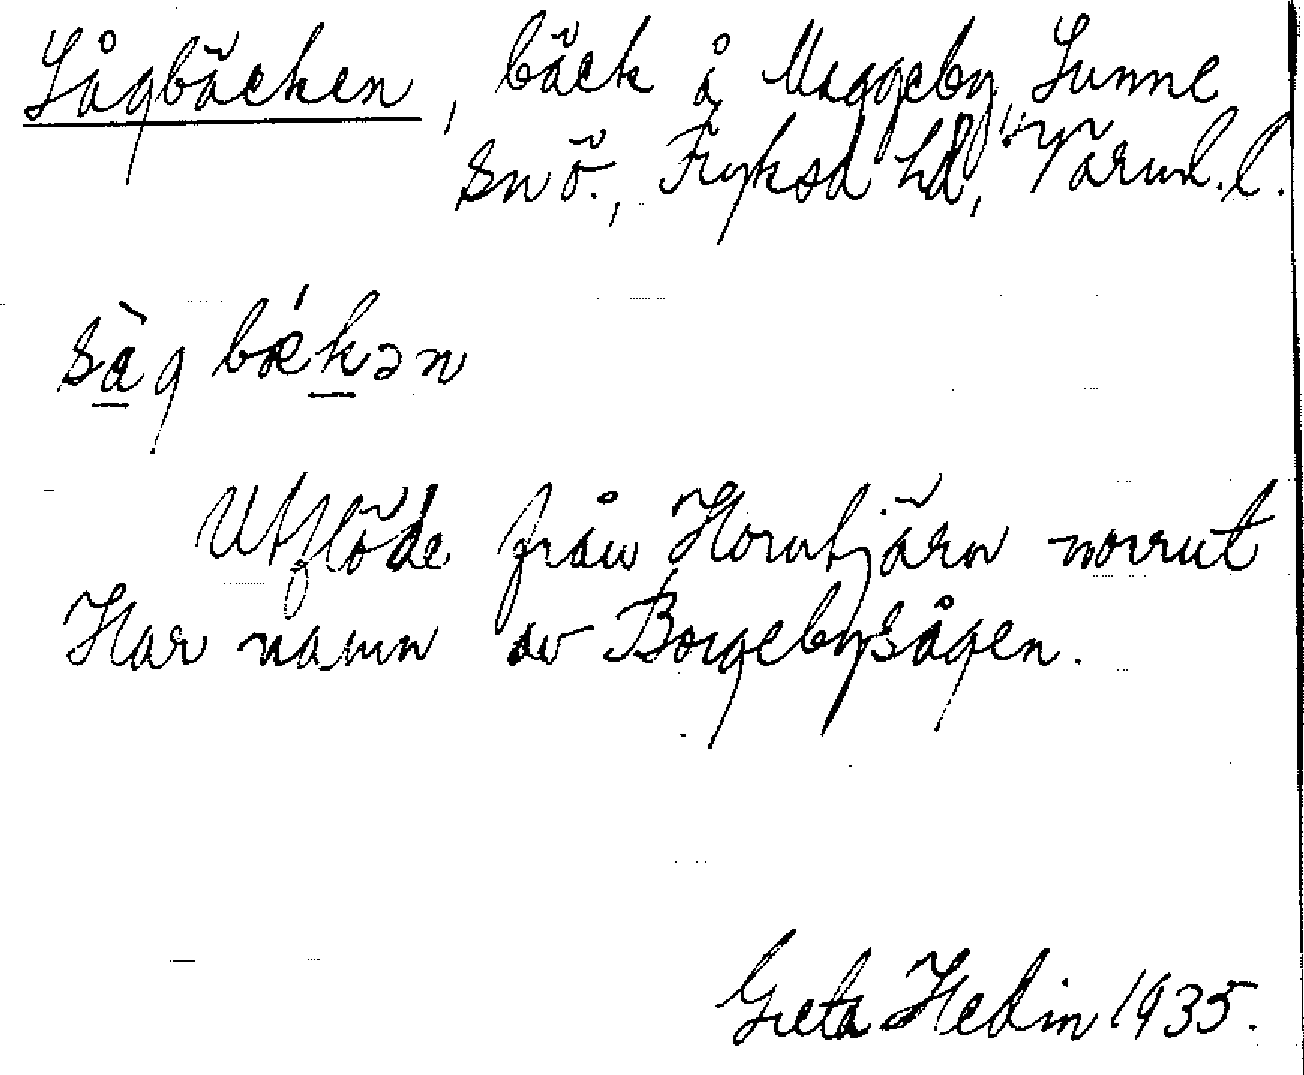 Sågbäcken, bäck å Maggeby, Sunne
snö., Fryksd. hd, Värml. l.
sàg bǽkən
Utflöde från Horntjärn norrut
Har namn av Borgebysågen.
Greta Hedin 1935.